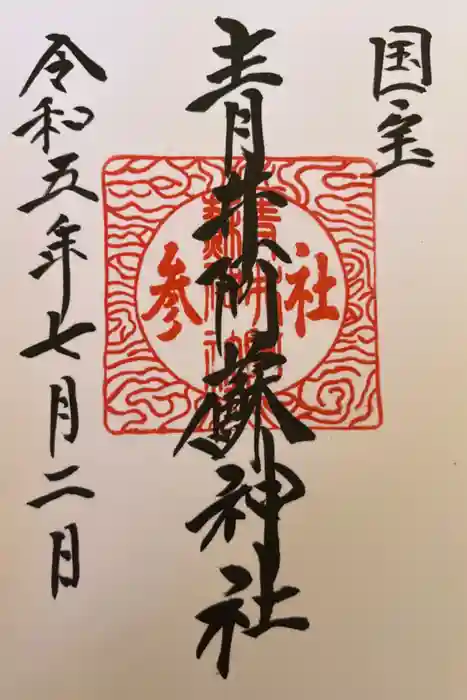 国宝
青井阿蘇神社
参社
令和五年七月二日